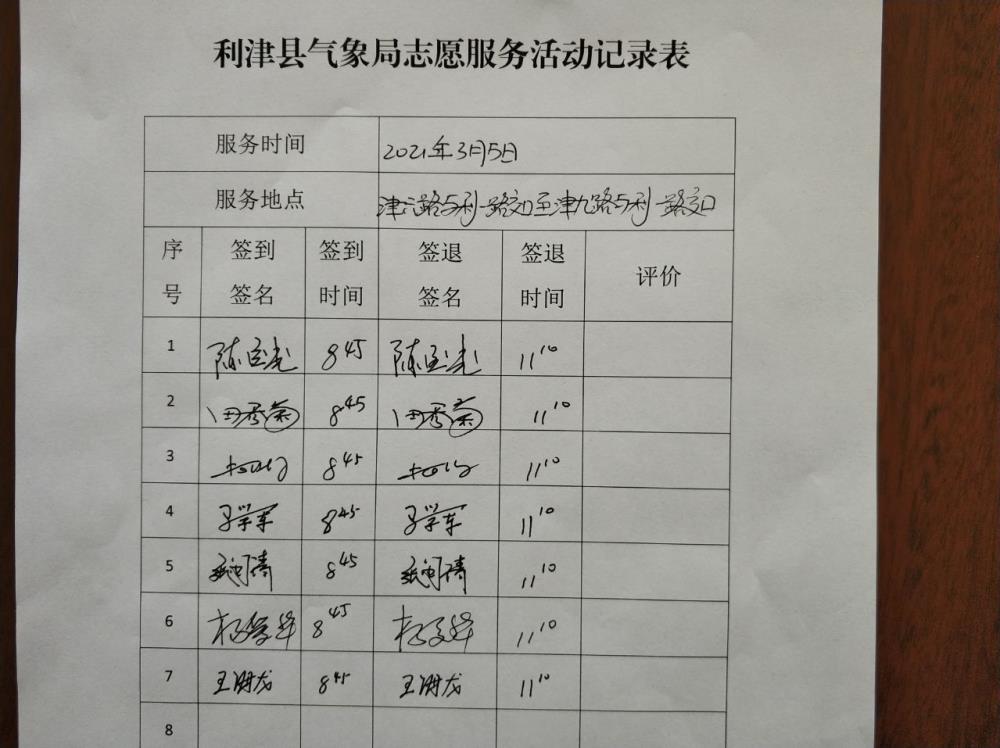 利津县气象局志愿服务活动记录表
服务时间 2021年3月5日
服务地点 津六路与利一路交口至津九路与利一路交口
序号 签到签名 签到时间 签退签名 签退时间 评价
1 8 45 11 10
2 田秀菊 8 45 田秀菊 11 10
3 8 45 11 10
4 8 45 11 10
5 8 45 11 10
6 8 45 11 10
7 王朋龙 8 45 王朋龙 11 10
8